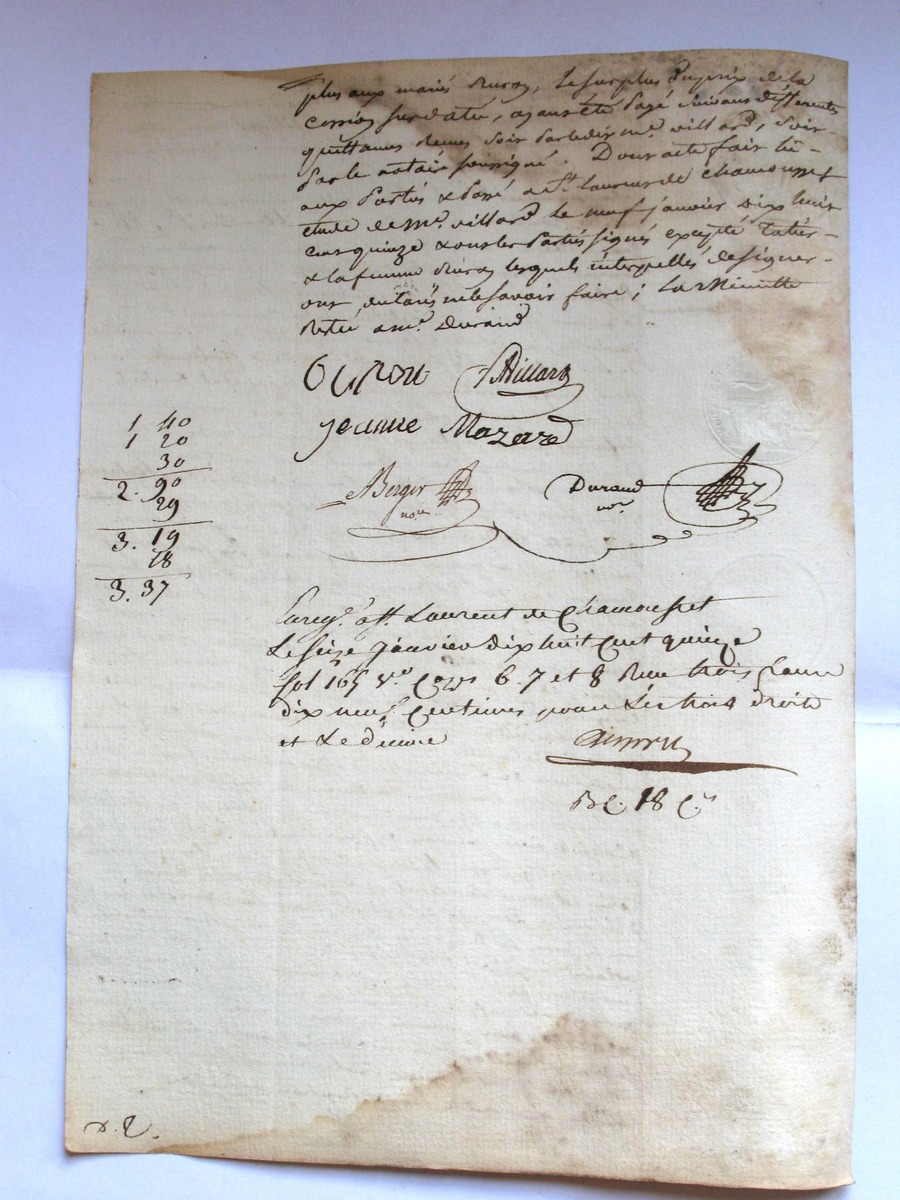 plus aux mariés Duron, le surplus du prix de la
cession susdatée, ayant été payé suivant différentes
quittances tenues soit par ledit me. villard, soit
par le notaire soussigné. Dont acte fait lu
aux parties & passé a st. laurent de chamousset
étude de me. villard le neuf janvier dix huit
cent quinze & ont les parties signés excepté
& la femme Duron lesquels interpellés de signer
ont declarés ne le savoir faire; la Minutte
Restée a me. Durand
Villard
jeanne Mazard
Berger
nore
Durand
nore
1 40
1 20
30
2. 90
29
3. 19
18
3. 37
Enregé. a st. Laurent de Chamousset
Le seize janvier dix huit Cent quinze
fol 165 vo. Cases 6 7 et 8 Reçu trois francs
dix neuf Centimes pour les trois droits
et le dixieme
18 Cs